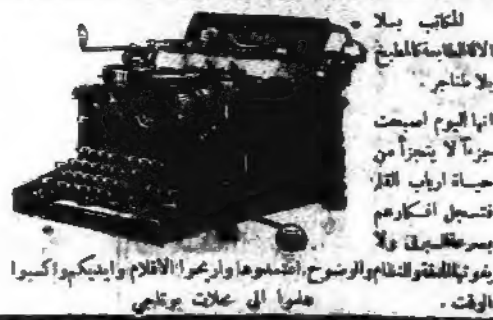 المكاتب بلا
الآلة الطابعة كالمطبخ
بلا طناجر .
انها اليوم اصبحت
جزءاً لا يتجزأ من
حياة ارباب القلم
فتسجل افكارهم
بسرعة البرق ولا
يفوتها الدقة والنظام والوضوح. اعتمدوها واريحوا الأقلام وايديكم واكسبوا
الوقت .
هلموا الى محلات بوتاجي